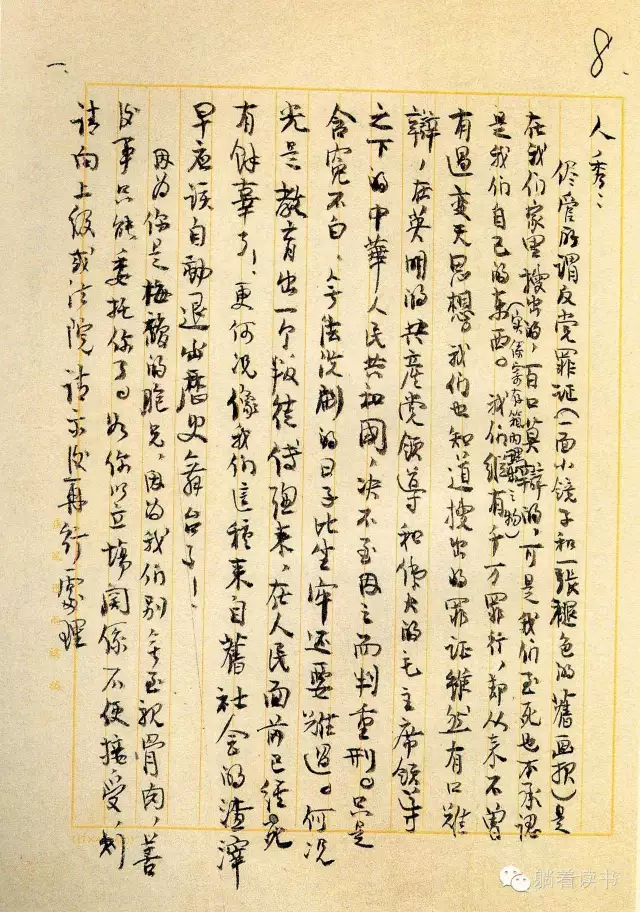 8.
一、
人秀：
尽管所谓反党罪证（一面小镜子和一张褪色的舊画报）是
在我们家里搜出的，百口莫辩的，可是我们至死也不承认
（实係寄存箱内理之物）
是我们自己的东西。我们纵有千万罪行，却从来不曾
有過变天思想。我们也知道搜出的罪证雖然有口难
辯，在英明的共產党领導和偉大的毛主席领导
之下的中華人民共和國，决不至因之而判重刑。只是
含冤不白，無法洗刷的日子比坐牢还要难過。何况
光是教育出一个叛徒傅聰来，在人民面前已经死
有餘辜了，更何况像我们這種来自舊社会的渣滓
早应该自動退出歷史舞台了！
因为你是梅馥的胞兄，因为我们别無至親骨肉，善
後事只能委托你了。如你以立場関係不便接受，则
请向上级或法院请示後再行處理
躺着读书